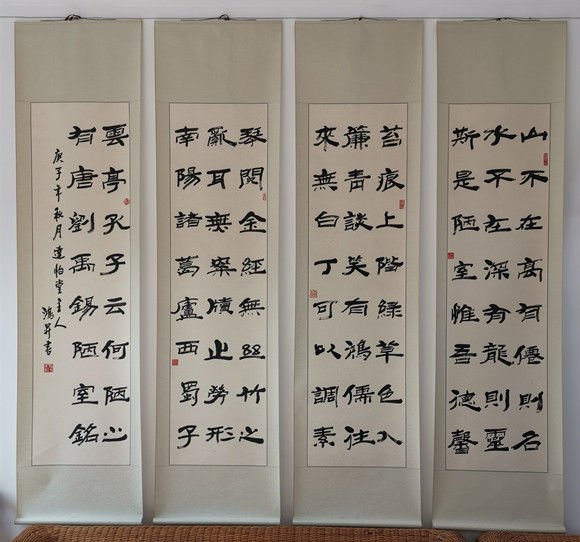 山不在高有僊則名
水不在深有龍則靈
斯是陋室惟吾德馨
苔痕上階綠草色入
簾青談笑有鴻儒往
來無白丁可以調素
琴閱金經無絲竹之
亂耳無案牘之勞形
南陽諸葛廬西蜀子
雲亭孔子云何陋之
有唐劉禹錫陋室銘
庚子年秋月怡堂主人
鴻昇書